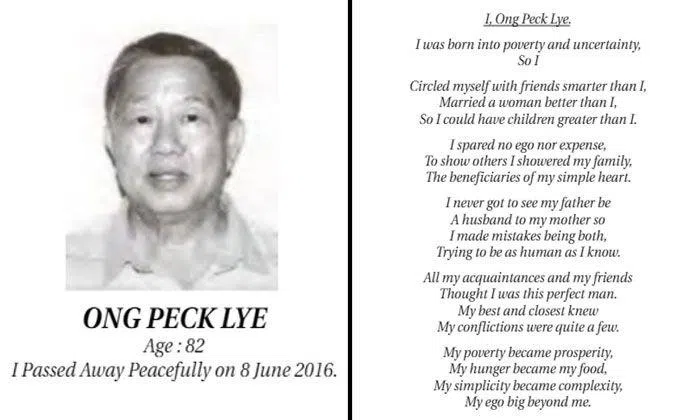 ONG PECK LYE
Age : 82
I Passed Away Peacefully on 8 June 2016.
I, Ong Peck Lye.
I was born into poverty and uncertainty,
So I
Circled myself with friends smarter than I,
Married a woman better than I,
So I could have children greater than I.
I spared no ego nor expense,
To show others I showered my family,
The beneficiaries of my simple heart.
I never got to see my father be
A husband to my mother so
I made mistakes being both,
Trying to be as human as I know.
All my acquaintances and my friends
Thought I was this perfect man.
My best and closest knew
My conflictions were quite a few.
My poverty became prosperity,
My hunger became my food,
My simplicity became complexity,
My ego big beyond me.